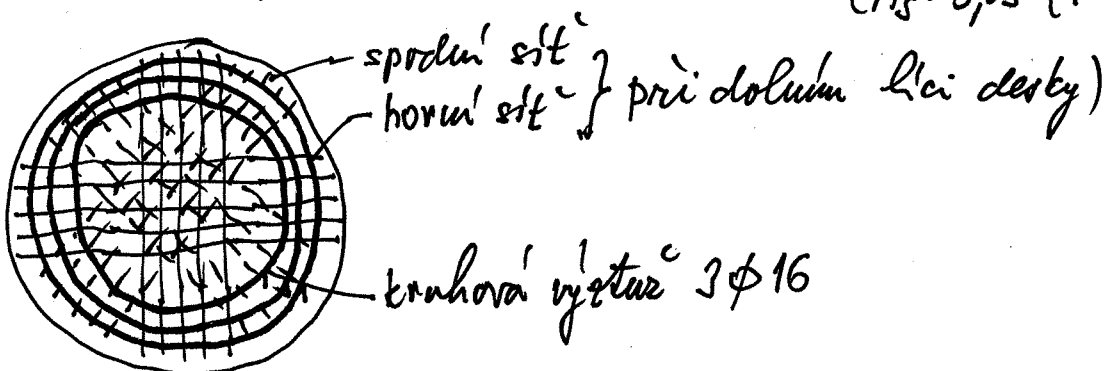 spodní síť
horní síť } při dolním líci desky)
kruhová výztuž 3ϕ16